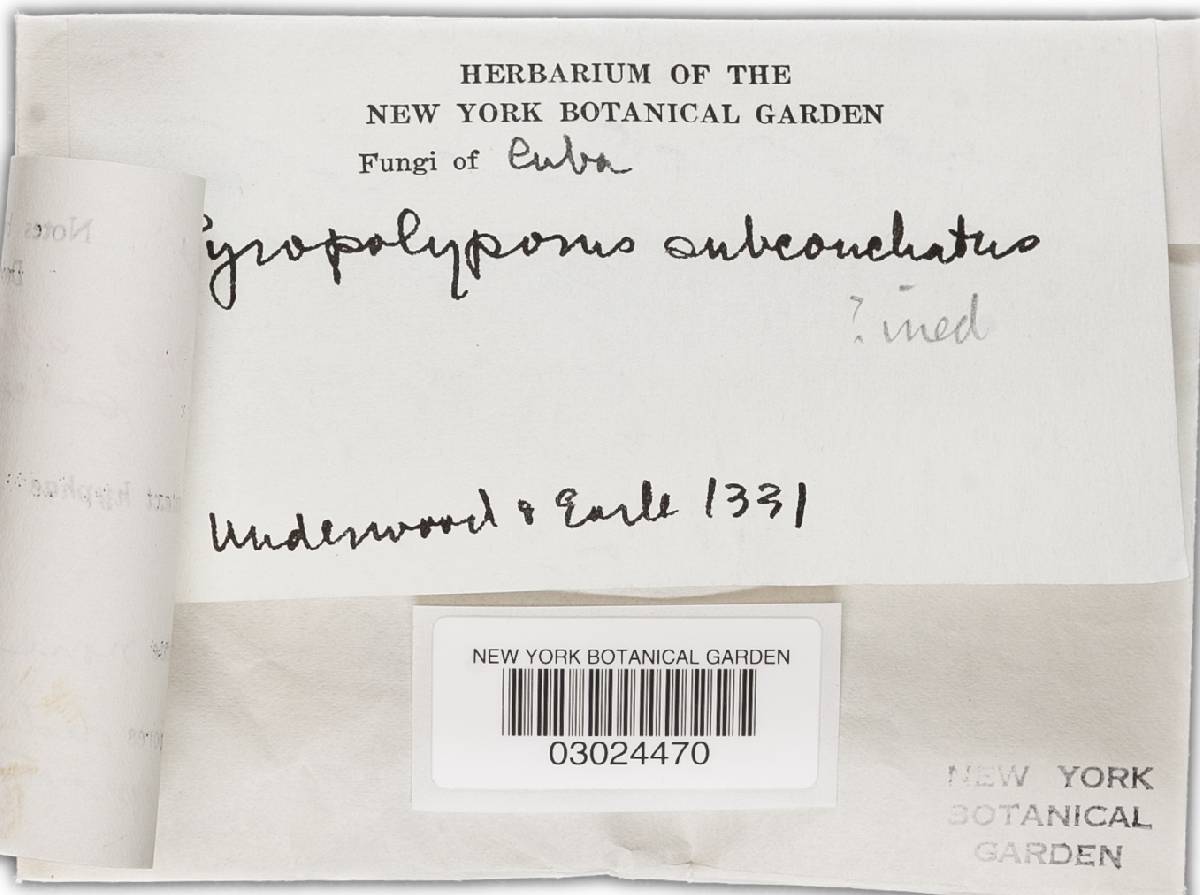 HERBARIUM OF THE
NEW YORK BOTANICAL GARDEN
Fungi of Cuba
Pyropolyporus subconchatus
? ined
Underwood & Earle 1331
NEW YORK BOTANICAL GARDEN
03024470
NEW YORK
BOTANICAL
GARDEN
Notes